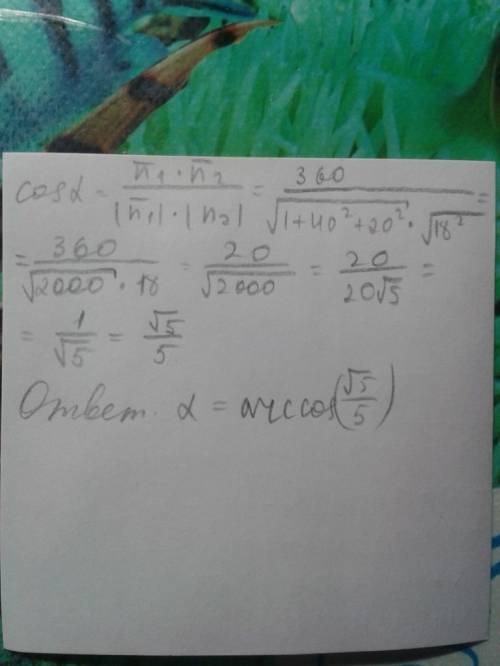 cos α = n̅₁ · n̅₂ / |n̅₁| · |n₂| = 360 / √(1+40²+20²) · √18² =
= 360 / √2000 · 18 = 20 / √2000 = 20 / 20√5 =
= 1 / √5 = √5 / 5
Ответ. α = arccos(√5/5)